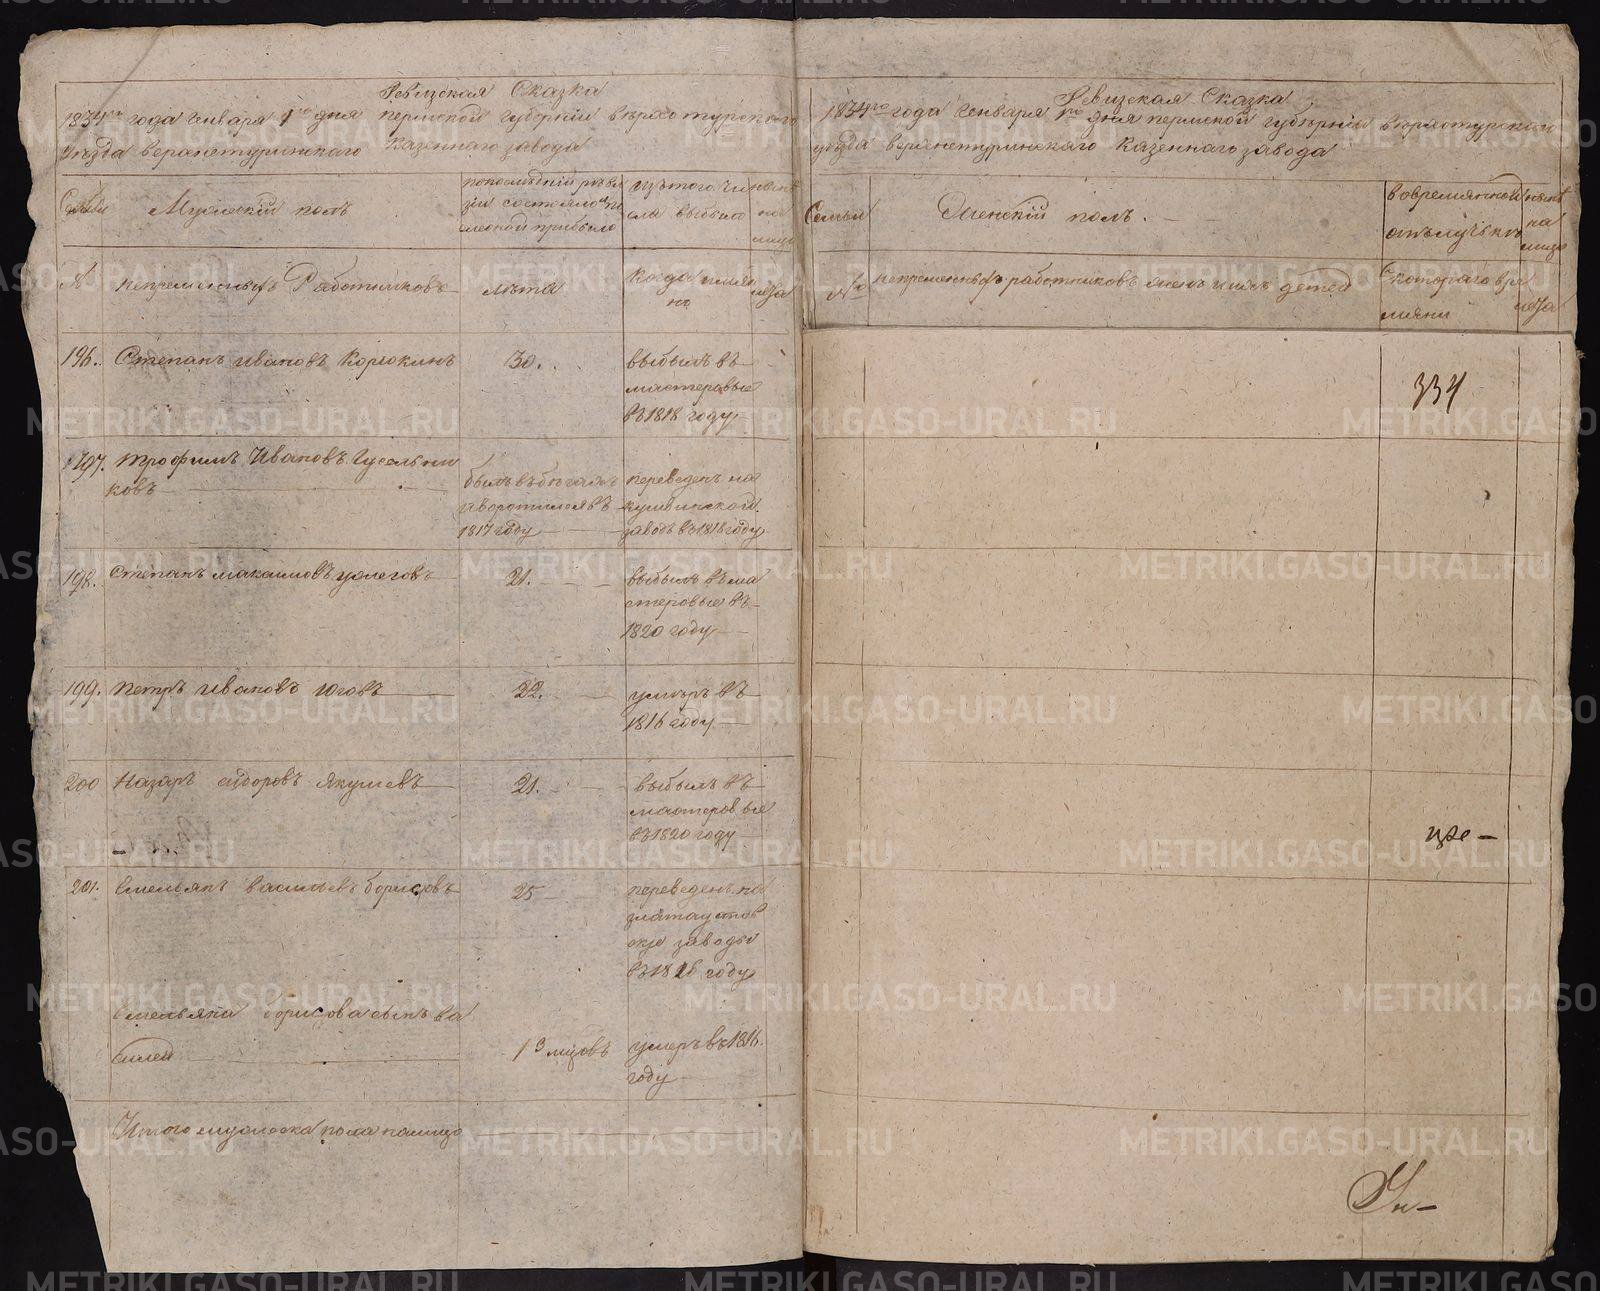 Ревизская Сказка
1834го года Генваря 1го дня пермской губернии верхотурского
уезда верхнетуринского Казеннаго завода
Семьи
Мужеский полъ
попоследней реви
зіи состояло и по
слеоной прибыло
изътого чи
сла выбыло
ныне
на
лицо
№
непременныхъ Работниковъ
лета
Когда имян
но
лета
196.
Степанъ Ивановъ Корюкинъ
30.
выбылъ въ
мастеровые
въ 1818 году
197.
Трофимъ Ивановъ Гусельни
ковъ
былъ въ бегахъ
иворотился въ
1817 году
переведенъ на
кушвинской
заводъ въ 1818 году
198.
Степанъ максимовъ
21.
выбылъ въ ма
стеровые въ
1820 году
199.
Петръ Ивановъ Юговъ
22.
умеръ въ
1816 году
200
Назаръ сидоровъ Якушевъ
21.
выбылъ въ
мастеровые
въ 1820 году
201.
Емельянъ васильевъ борисовъ
25
переведенъ на
златоустов
ские заводы
въ 1816 году
Емельяна борисова сынъ ва
силей
9 мцовъ
умеръ въ 1816.
году
Итого мужеска пола налицо
Ревизская Сказка
1834го года Генваря 1го дня пермской губерніи верхотурского
уезда верхнетуринского Казеннаго завода
Семьи
Женский полъ.
вовременной
отълучьке
ныне
на
лицо
№
непременныхъ работниковъ жены ихъ детей
Скотораго вре
мяни
лета
334
Ун-
METRIKI.GASO-URAL.RU